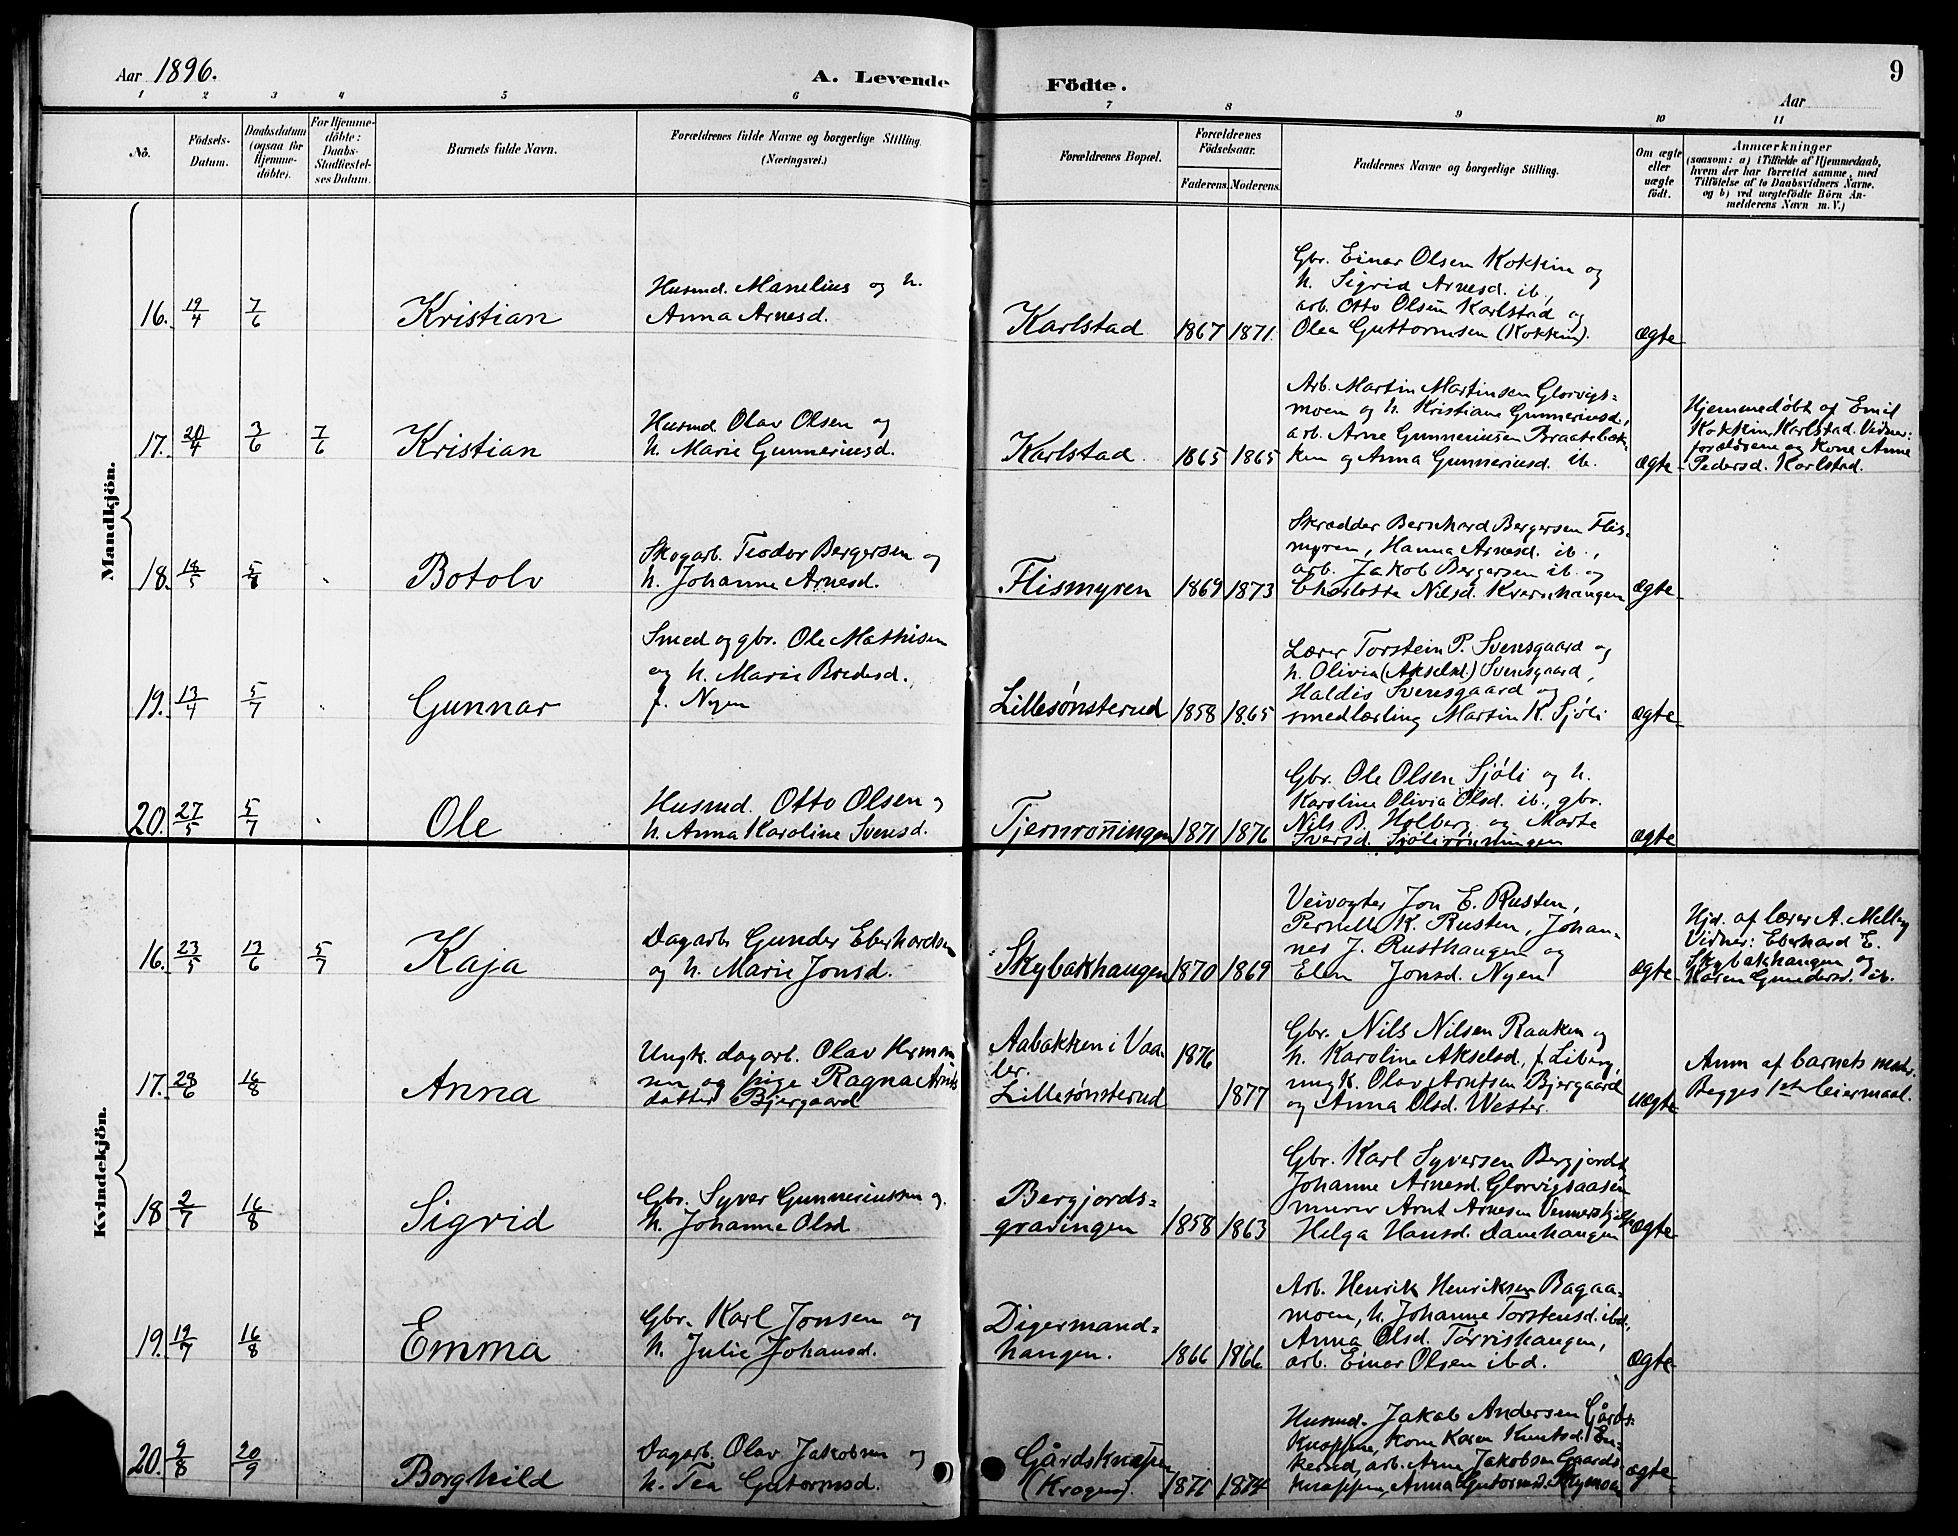 Aar 1896.
A. Levende Födte.
9
Aar
1 2 3 4 5 6 7 8 9 10 11
No.
Födsels-Datum.
Daabsdatum (ogsaa for Hjemme-döbte).
For Hjemme-döbte: Daabs-Stadfæstel-ses Datum.
Barnets fulde Navn.
Forældrenes fulde Navne og borgerlige Stilling. (Næringsvei.)
Forældrenes Bopæl.
Forældrenes Födselsaar.
Faderens. Moderens.
Faddernes Navne og borgerlige Stilling.
Om ægte eller uægte födt.
Anmærkninger
(saasom: a) i Tilfælde af Hjemmedaab,
hvem der har forrettet samme, med
Tilföielse af to Daabsvidners Navne.
og b) ved uægtefödte Börn An-
melderens Navn m. V.)
Mandkjön.
16. 19/4 7/6 Kristian
Husmd. Manelius og h.
Anna Arnesd.
Karlstad 1867 1871.
Gbr. Einar Olsen Kokkin og
h. Sigrid Arnesd. ib.,
arb. Otto Olsen Karlstad og
Olea Guttormsen (Kokkin).
ægte
17. 20/4 3/6 7/6 Kristian
Husmd Olav Olsen og
h. Marie Gunneriusd.
Karlstad. 1865 1865
Arb. Martin Martinsen Glorvigs-
moen og h. Kristiane Gunneriusd,
arb. Arne Gunneriusen Braatebak-
ken og Anna Gunneriusd. ib.
ægte
Hjemmedøbt af Emil
Kokkin, Karlstad. Vidner:
forældrene og Kone Anne
Pedersd. Karlstad.
18. 18/5 5/8 Botolv
Skogarb. Teodor Bergersen og
h. Johanne Arnesd.
Flismyren 1869 1873
Skrædder Bernhard Bergersen Flis-
myren, Hanna Arnesd. ib.,
arb. Jakob Bergersen ib. og
Charlotte Nilsd. Kvernhaugen
ægte
19. 13/4 5/7 Gunnar
Smed og gbr. Ole Mathisen
og h. Marie Bredesd.
f. Nyen
Lillesønsterud 1858 1865
Lærer Torstein P. Svensgaard og
h. Olivia (Akselsd.) Svensgaard,
Haldis Svensgaard og
smedlærling Martin K. Sjöli
ægte
20. 27/5 5/7 Ole
Husmd. Otto Olsen og
h. Anna Karoline Svensd.
Tjernrønningen 1871 1876
Gbr. Ole Olsen Sjöli og h.
Karoline Olivia Olsd. ib., gbr.
Nils B. Holberg og Marte
Iversd. Sjölirönningen
ægte
Kvindekjön.
16. 23/5 13/6 5/7 Kaja
Dagarb. Gunder Eberhardsen
og h. Marie Jonsd.
Skybakhaugen 1870 1869
Veivogter Jon E. Rusten,
Pernille K. Rusten, Johan-
nes J. Rusthaugen og
Elen Jonsd. Nyen
ægte
Hjd. af lærer A. Melby
Vidner: Eberhard E.
Skybakhaugen og
Karen Gundersd. ib.
17. 28/6 16/8 Anna
Ungk. dagarb. Olav Herman
sen og pige Ragna Arnts
datter Bjergaard
Aabakken i Vaa-
ler.
Lillesønsterud
1876
1877
Gbr. Nils Nilsen Raaken og
h. Karoline Akselsd. f. Liberg,
ungk. Olav Arntsen Bjergaard
og Anna Olsd. Wester.
uægte
Anm af barnets moder.
Begges 1ste leiermaal.
18 2/7 16/8 Sigrid
Gbr. Syver Gunneriussen og
h. Johanne Olsd.
Bergjords-
gravingen 1858 1863
Gbr. Karl Syversen Bergjordet
Johanne Arnesd. Glorvigsaasen
murer Arnt Arnesen
Helga Hansd. Danehaugen
ægte
19. 19/7 16/8 Emma
Gbr. Karl Jonsen og
h. Julie Johansd.
Digermand-
haugen. 1866 1866
Arb. Henrik Henriksen Bagaa-
moen, h. Johanne Torstensd. ibd,
Anna Olsd. Torrishaugen,
arb. Einar Olsen ibd.
ægte
20. 9/8 20/9 Borghild
Dagarb. Olav Jakobsen og
h. Tea Gutormsd.
Gårdsknappen
(Krogen). 1871 1874
Husmd. Jakob Andersen Gårds-
knappen, Kone Karen Knutsd. En-
kerud, arb. Arne Jakobsen Gaards-
knappen, Anna Gutormsd. Skymoen
ægte